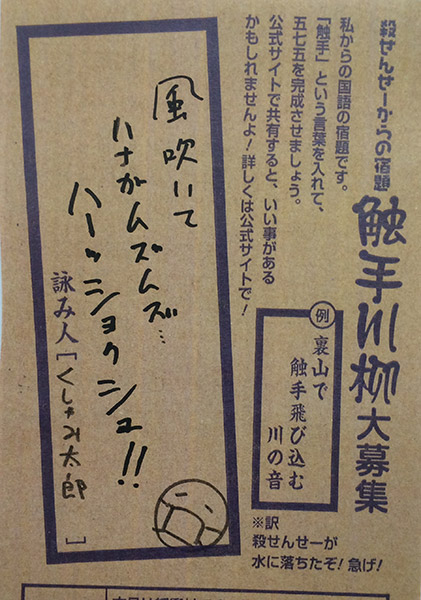 殺せんせーからの宿題
触手川柳大募集
私からの国語の宿題です。
「触手」という言葉を入れて、
五七五を完成させましょう。
公式サイトで共有すると、いい事がある
かもしれませんよ!詳しくは公式サイトで!
例
裏山で
触手飛び込む
川の音
※訳
殺せんせーが
水に落ちたぞ!急げ!
風吹いて
ハナがムズムズ…
ハーッショクシュ!!
詠み人[くしゃみ太郎]